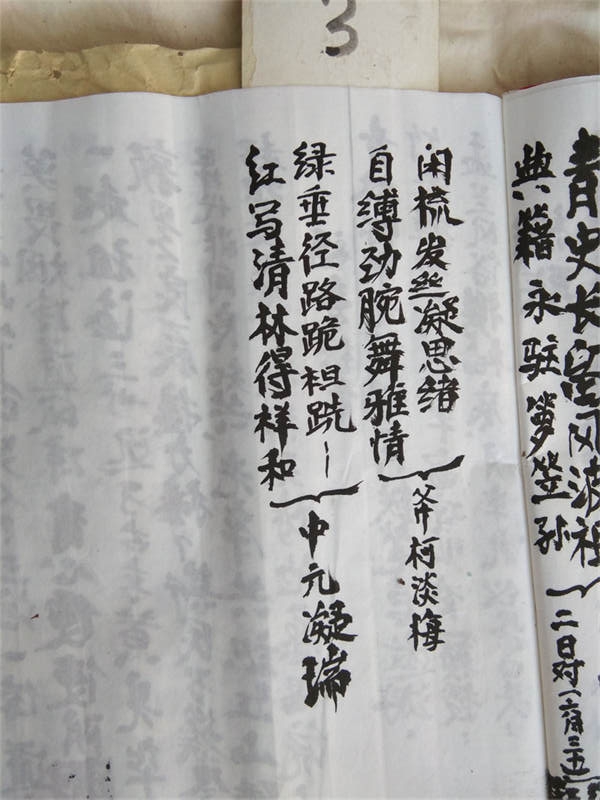 3
青史长宫风波祖
典籍永驻箩笠孙
二日对
闲梳发丝凝思绪
自缚劲腕舞雅情
斧柯淡梅
绿垂径路跪袒跣
红写清林得祥和
中元凝瑞